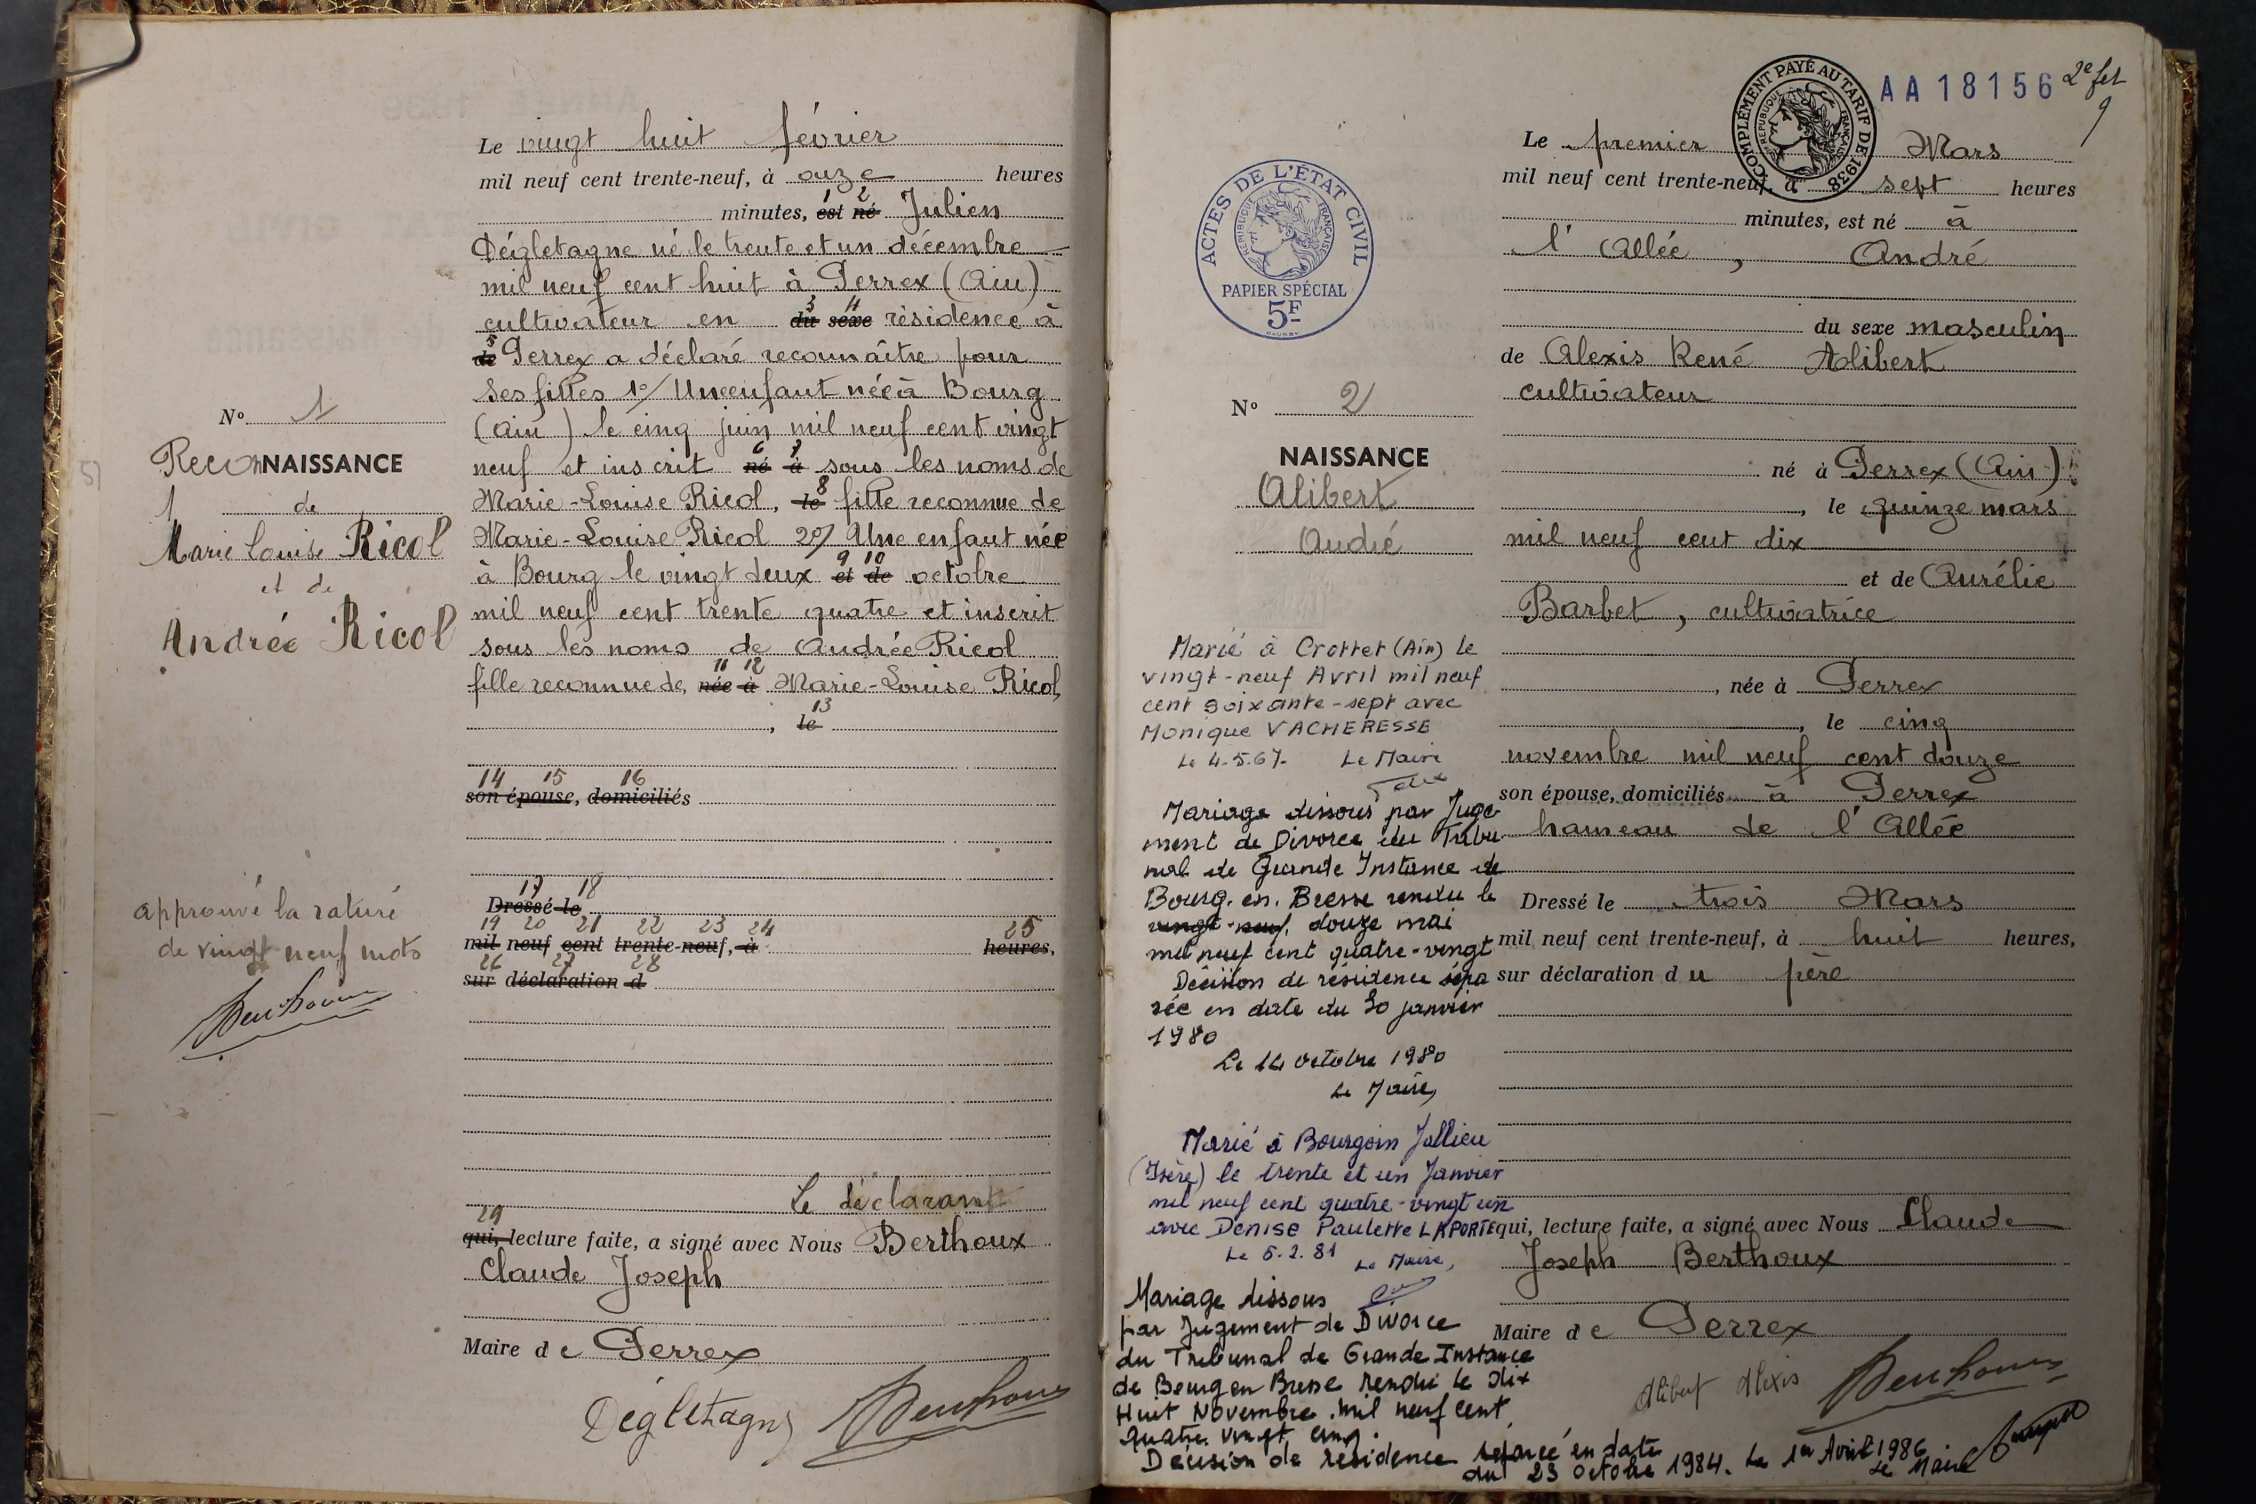 Le vingt huit février
mil neuf cent trente-neuf, à onze heures
minutes, est né Julien
1 2
Dégletagne né le trente et un décembre
mil neuf cent huit à Perrex (Ain)
cultivateur en du sexe résidence à
3 4
de Perrex a déclaré reconnaître pour
5
ses filles 1º/ Une enfant née à Bourg
(Ain) le cinq juin mil neuf cent vingt
neuf et inscrit né à sous les noms de
6 7
Marie-Louise Ricol, le fille reconnue de
8
Marie-Louise Ricol 2º/ Une enfant née
à Bourg le vingt deux et de octobre
9 10
mil neuf cent trente quatre et inscrit
sous les noms de Andrée Ricol
fille reconnue de, née à Marie-Louise Ricol,
11 12
, le
13
14 15 16
son épouse, domiciliés
17 18
Dressé le
19 20 21 22 23 24 25
mil neuf cent trente-neuf, à heures,
26 27 28
sur déclaration d
Le déclarant
29
qui, lecture faite, a signé avec Nous Berthoux
Claude Joseph
Maire de Perrex
Dégletagne Berthoux
Nº 1
ReconNAISSANCE
1 de
Marie Louise Ricol
et de
Andrée Ricol
approuvé la rature
de vingt neuf mots
Berthoux
AA18156 2e fet
9
COMPLÉMENT PAYÉ AU TARIF DE 1938
REPUBLIQUE FRANÇAISE
ACTES DE L'ÉTAT CIVIL
REPUBLIQUE FRANÇAISE
PAPIER SPÉCIAL
5F
Nº 2
NAISSANCE
Alibert
André
Marié à Crottet (Ain) le
vingt-neuf Avril mil neuf
cent soixante-sept avec
Monique VACHERESSE
Le 4.5.67. Le Maire
Mariage dissous par Juge-
ment de Divorce du Tribu
nal de Grande Instance de
Bourg. en. Bresse rendu le
vingt-neuf, douze mai
mil neuf cent quatre-vingt
Décision de résidence sépa
rée en date du 30 janvier
1980
Le 14 octobre 1980
Le Maire,
Marié à Bourgoin Jallieu
(Isère) le trente et un Janvier
mil neuf cent quatre-vingt un
avec Denise Paulette LAPORTE
Le 5.2.81 Le Maire,
Mariage dissous
par Jugement de Divorce
du Tribunal de Grande Instance
de Bourg en Bresse rendu le dix
Huit Novembre mil neuf cent
quatre vingt cinq.
Décision de résidence séparée en date
du 23 octobre 1984. Le 1er Avril 1986
Le Maire
Le premier Mars
mil neuf cent trente-neuf, à sept heures
minutes, est né à
l'Allée, André
du sexe masculin
de Alexis René Alibert
cultivateur
né à Perrex (Ain)
, le quinze mars
mil neuf cent dix
et de Aurélie
Barbet, cultivatrice
, née à Perrex
, le cinq
novembre mil neuf cent douze
son épouse, domiciliés à Perrex
hameau de l'Allée
Dressé le trois Mars
mil neuf cent trente-neuf, à huit heures,
sur déclaration du père
qui, lecture faite, a signé avec Nous Claude
Joseph Berthoux
Maire de Perrex
Alibert Alexis Berthoux